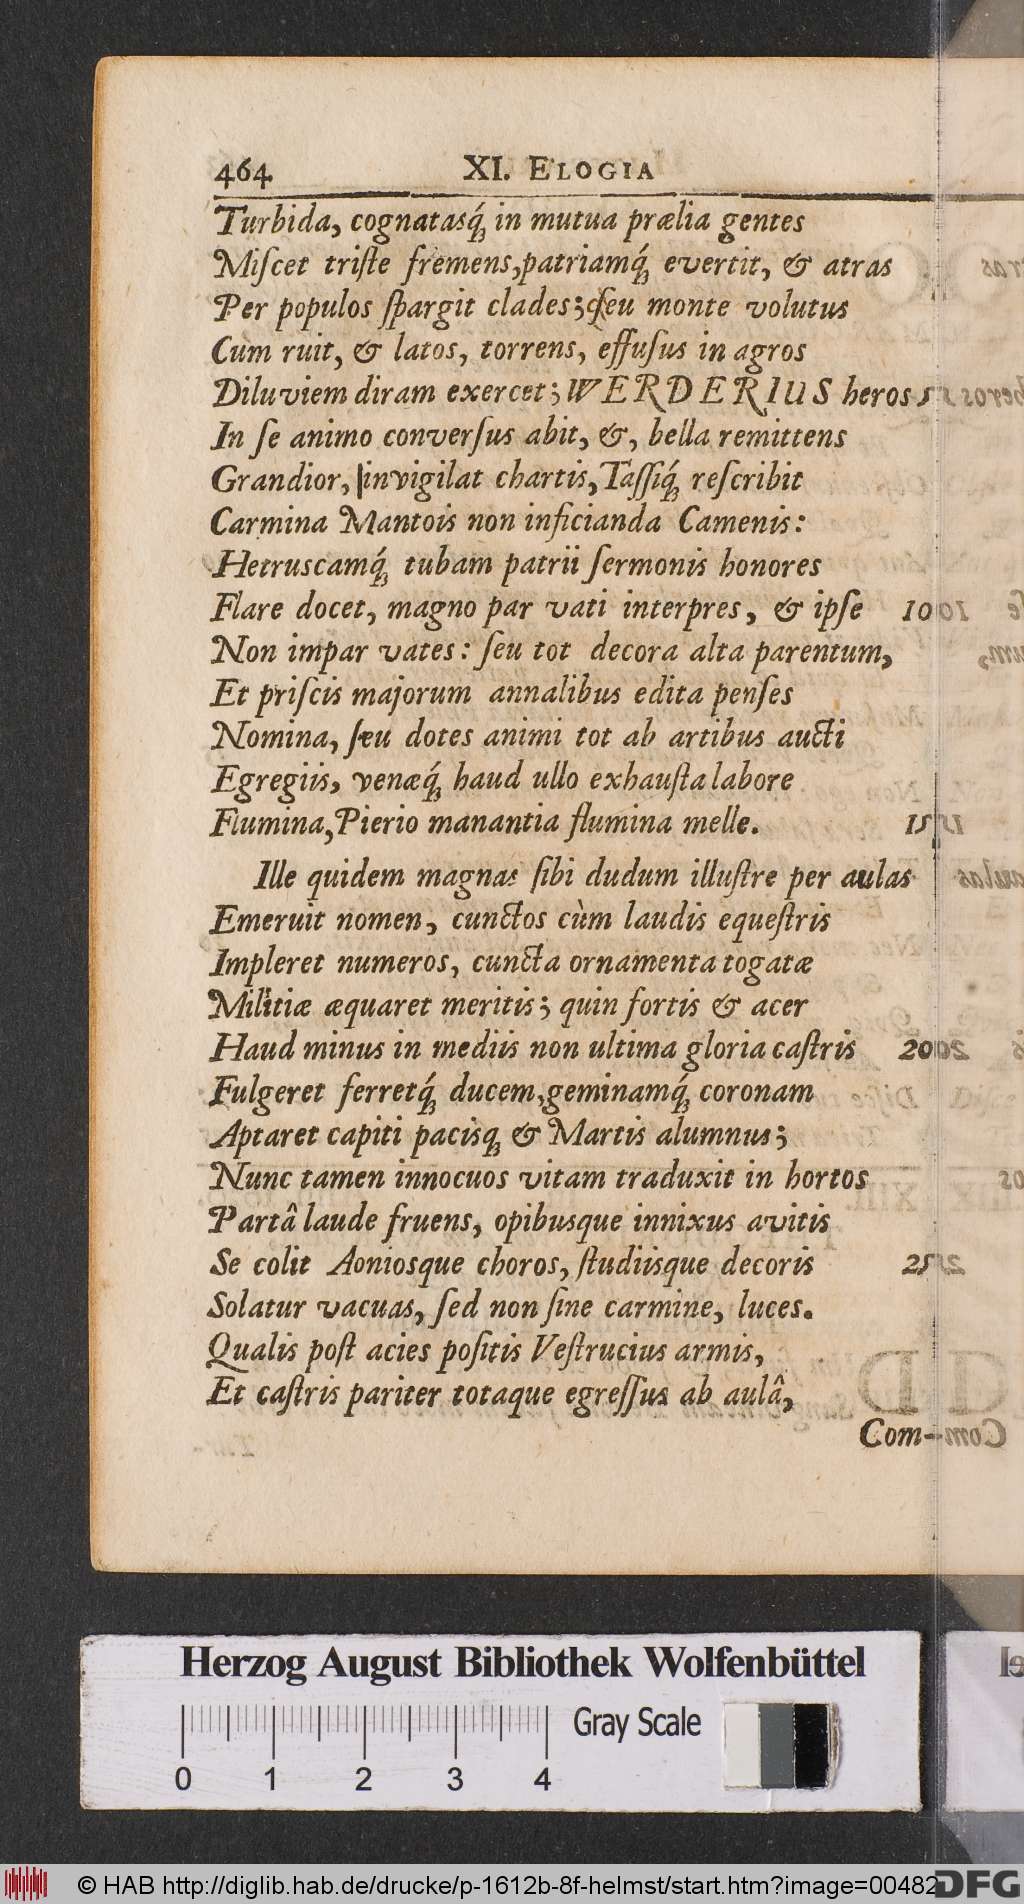 464 XI. ELOGIA
Turbida, cognatasq́; in mutua prælia gentes
Miſcet triſte fremens, patriamq́; evertit, & atras
Per populos ſpargit clades; ſeu monte volutus
Cum ruit, & latos, torrens, effuſus in agros
Diluviem diram exercet; WERDERIUS heros 5
In ſe animo converſus abit, &, bella remittens
Grandior, invigilat chartis, Taſſiq́; reſcribit
Carmina Mantois non inficianda Camenis:
Hetruscamq́; tubam patrii ſermonis honores
Flare docet, magno par vati interpres, & ipſe 10
Non impar vates: ſeu tot decora alta parentum,
Et priſcis majorum annalibus edita penſes
Nomina, ſeu dotes animi tot ab artibus aucti
Egregiis, venæq́; haud ullo exhauſta labore
Flumina, Pierio manantia flumina melle. 15
Ille quidem magnas ſibi dudum illuſtre per aulas
Emeruit nomen, cunctos cùm laudis equeſtris
Impleret numeros, cuncta ornamenta togatæ
Militiæ æquaret meritis; quin fortis & acer
Haud minus in mediis non ultima gloria caſtris 20
Fulgeret ferretq́; ducem, geminamq́; coronam
Aptaret capiti pacisq; & Martis alumnus;
Nunc tamen innocuos vitam traduxit in hortos
Partâ laude fruens, opibusque innixus avitis
Se colit Aoniosque choros, ſtudiisque decoris 25
Solatur vacuas, ſed non ſine carmine, luces.
Qualis poſt acies poſitis Veſtrucius armis,
Et caſtris pariter totaque egreſſus ab aulâ,
Com-
Herzog August Bibliothek Wolfenbüttel
Gray Scale
0 1 2 3 4
© HAB http://diglib.hab.de/drucke/p-1612b-8f-helmst/start.htm?image=00482
DFG